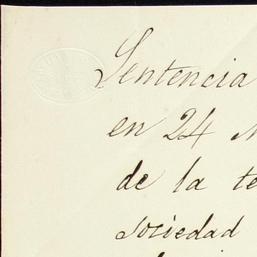 Sentencia
en 24
de la te
sociedad